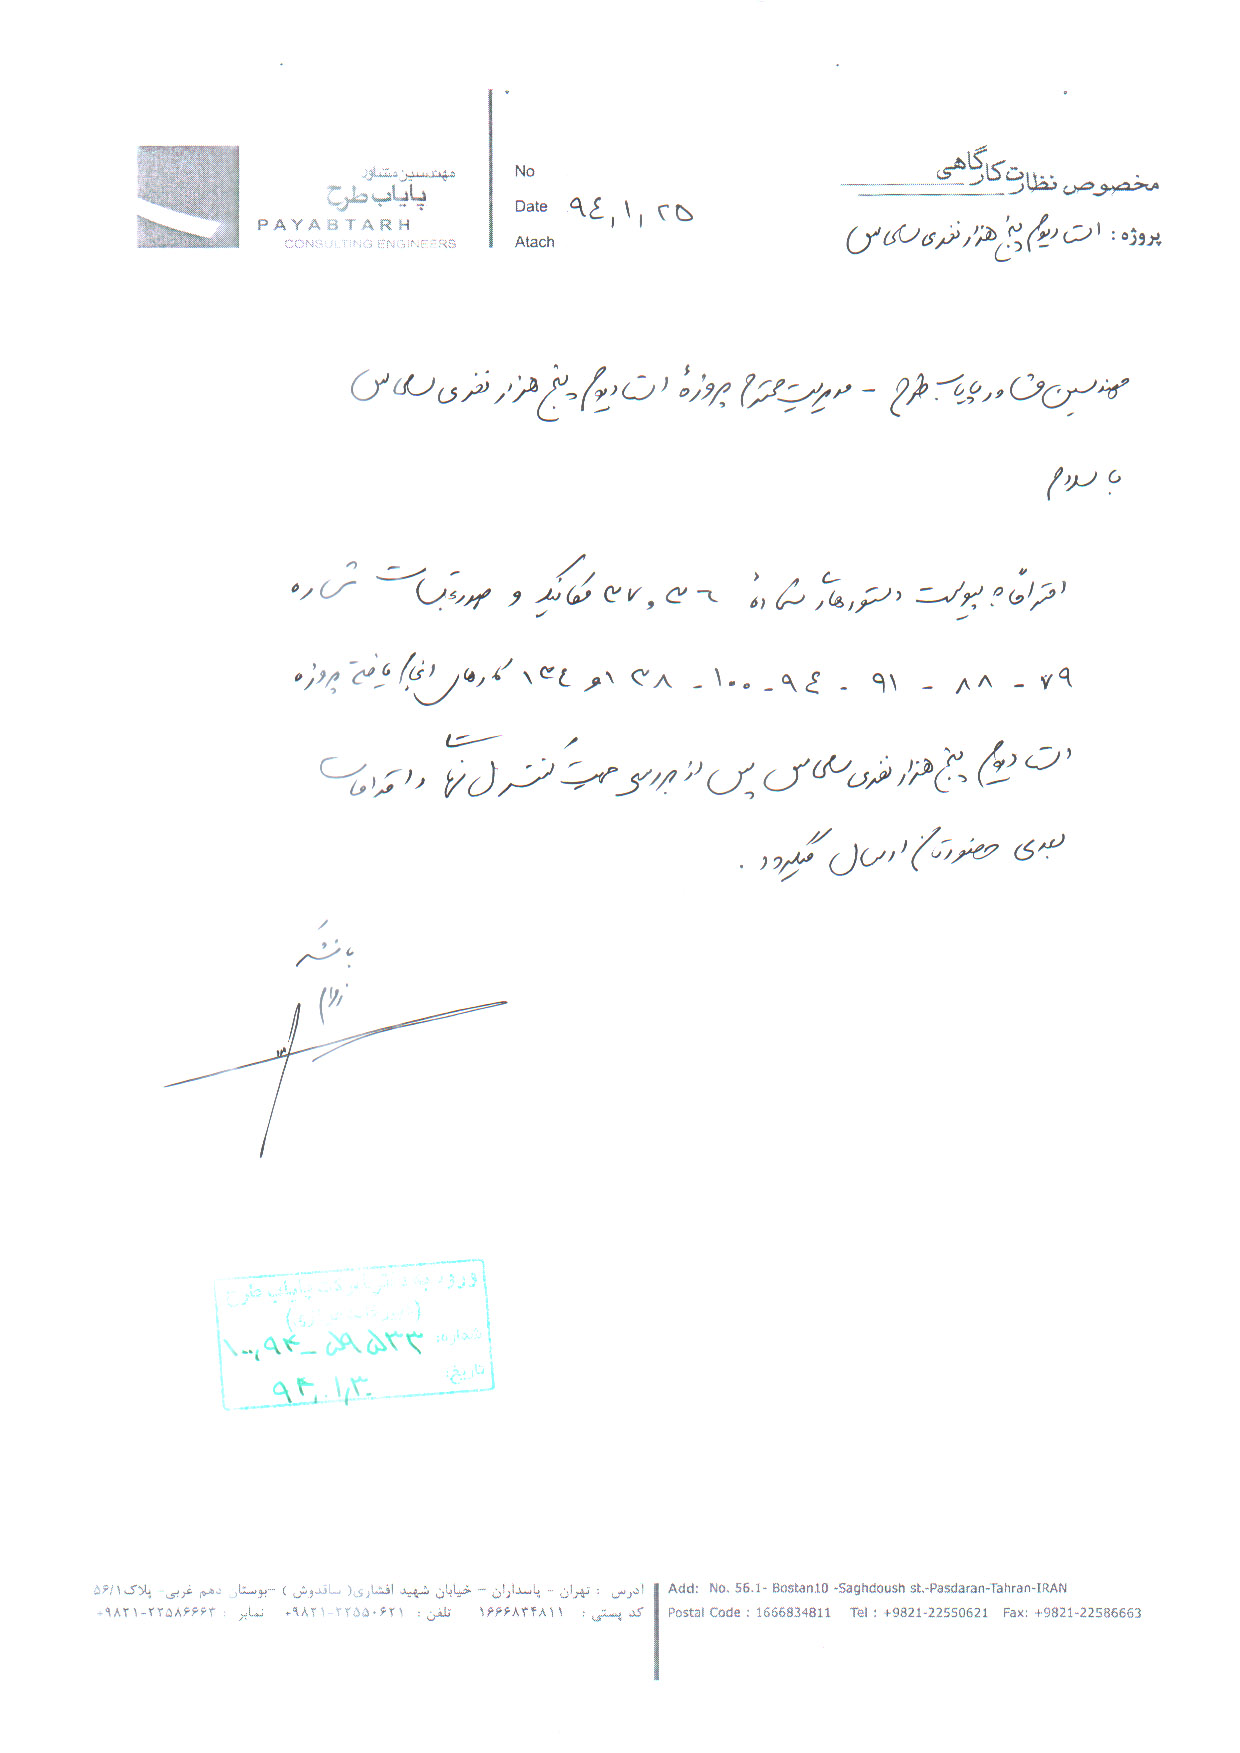 مهندسین مشاور
پایاب طرح
PAYABTARH
CONSULTING ENGINEERS
No
Date ۹٤,۱,۲۵
Atach
مخصوص نظارت کارگاهی
پروژه : استادیوم پنج هزار نفری سلماس
مهندسین مشاور پایاب طرح - مدیریت محترم پروژهٔ استادیوم پنج هزار نفری سلماس
با سلام
احتراماً به پیوست دستورکارهای شمارهٔ ۳٦ و ۳۷ مکانیک و صورتجلسات شماره
۷۹ - ۸۸ - ۹۱ - ۹٤ - ۱۰۰ - ۱۳۸ و ۱۳٤ کارهای انجام یافته پروژه
استادیوم پنج هزار نفری سلماس پس از بررسی جهت کنترل نهایی و اقدامات
بعدی حضورتان ارسال میگردد .
با تشکر
ورود به دفتر شرکت پایاب طرح
شماره: ۱۰۰,۹۴-۵۹۵۳۳
تاریخ: ۹۴,۰۱,۳۰
آدرس : تهران - پاسداران - خیابان شهید افشاری( ساقدوش ) -بوستان دهم غربی- پلاک۵۶/۱
کد پستی : ۱۶۶۶۸۳۴۸۱۱ تلفن : ۹۸۲۱-۲۲۵۵۰۶۲۱+ نمابر : ۹۸۲۱-۲۲۵۸۶۶۶۳+
Add: No. 56.1- Bostan.10 -Saghdoush st.-Pasdaran-Tahran-IRAN
Postal Code : 1666834811 Tel : +9821-22550621 Fax: +9821-22586663